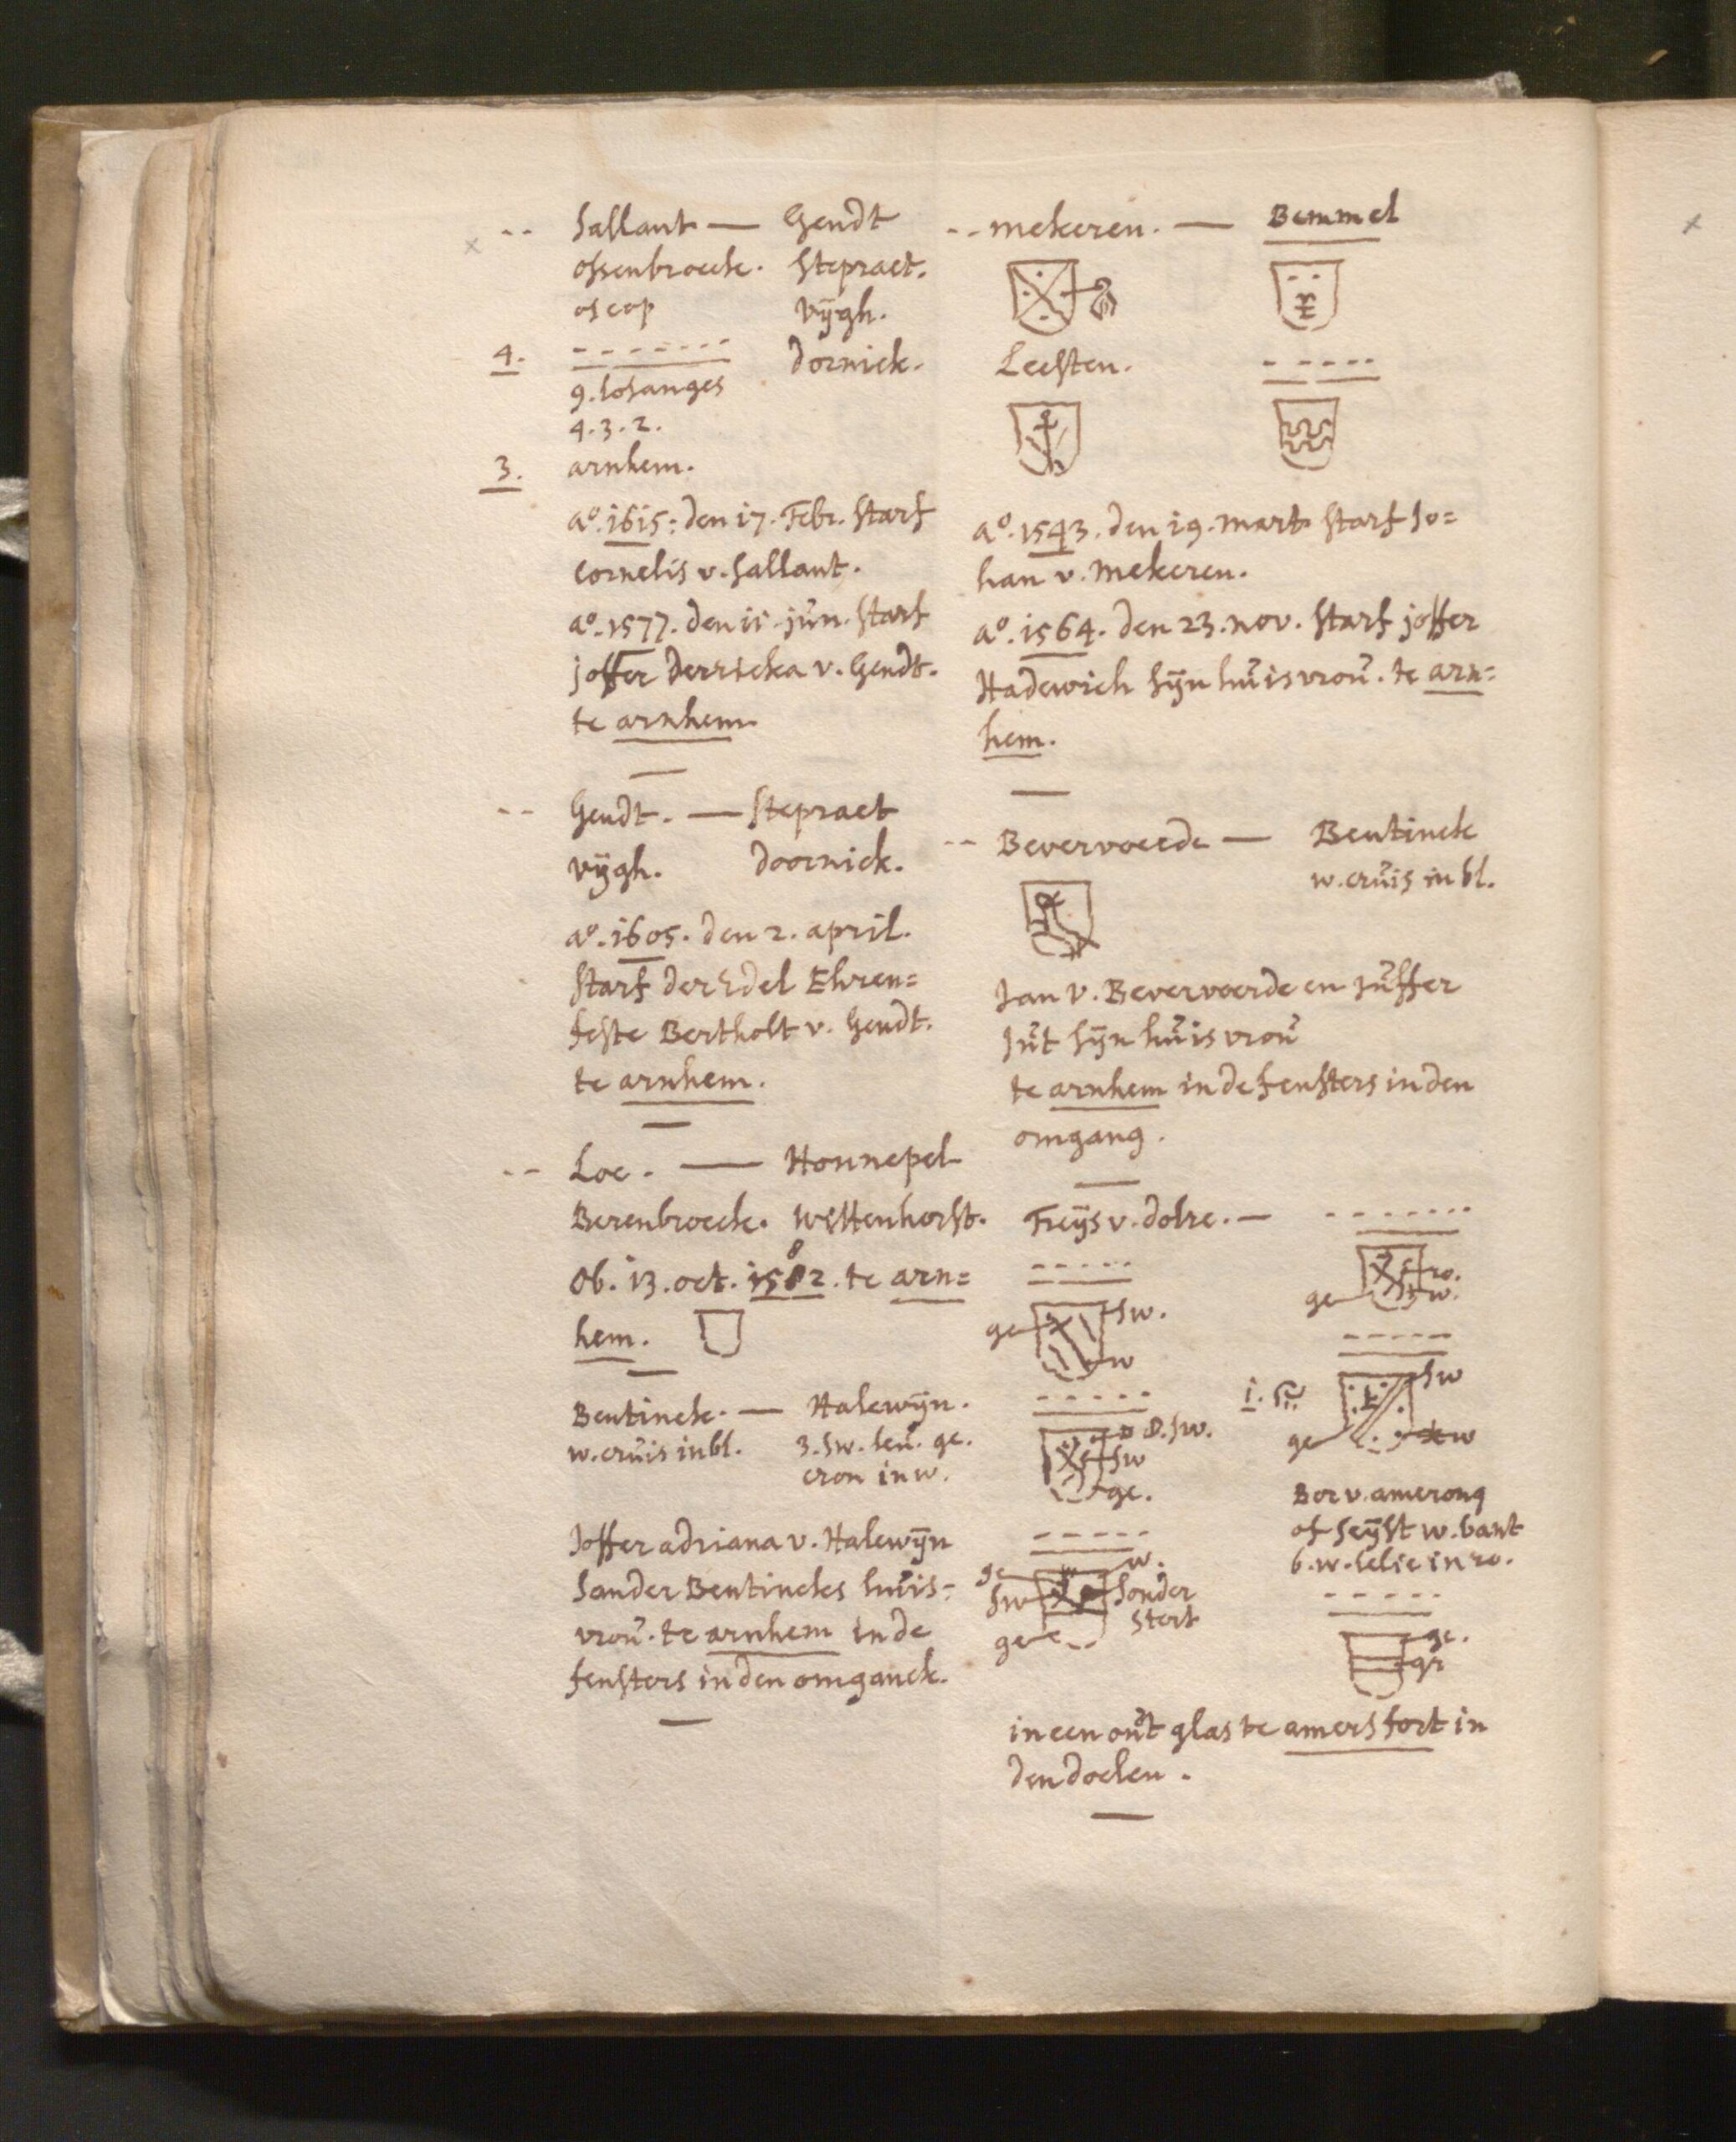 -- Sallant — Gendt
Ossenbroeck. Stepraet.
oscop vÿgh.
4. ------- Dornick.
9. losanges
4.3.2.
3. arnhem.
aº. 1615: den 17. Febr. starf
Cornelis v. Sallant.
aº. 1577. den 11. jun. starf
joffer Derricka v. Gendt.
te arnhem.
-- Gendt. — Stepraet
vÿgh. Doornick.
aº. 1605. den 2. april.
starf der Edel Ehren=
feste Bertholt v. Gendt.
te arnhem.
-- Loe. — Honnepel
Berenbroeck. Wittenhorst.
Ob. 13. oct. 1582. te arn=
8
hem.
Bentinck. — Halewÿn.
w. cruis in bl. 3. sw. leu. ge.
cron in w.
Joffer adriana v. Halewÿn
Sander Bentincks huis=
vrou. te arnhem in de
fensters in den omganck.
-- mekeren. — Bemmel
Leesten. -----
aº. 1543. den 19. mart starf Jo=
han v. mekeren.
aº. 1564. den 23. nov. starf joffer
Hadewich sÿn huisvrou. te arn=
hem.
-- Bevervoerde — Bentinck
w. cruis in bl.
Jan v. Bevervoerde en Juffer
Jut sÿn huisvrou
te arnhem in de fensters in den
omgang.
Freÿs v. dolre. — -------
----- ro.
ge w.
ge sw.
w -----
----- 1. sw
8. sw. ge w
sw
ge. Bor v. amerong
of seÿst w. bant
----- 6. w. lelie in ro.
ge w. -----
sw sonder
stert
ge ge.
gr
in een out glas te amersfort in
den doelen.